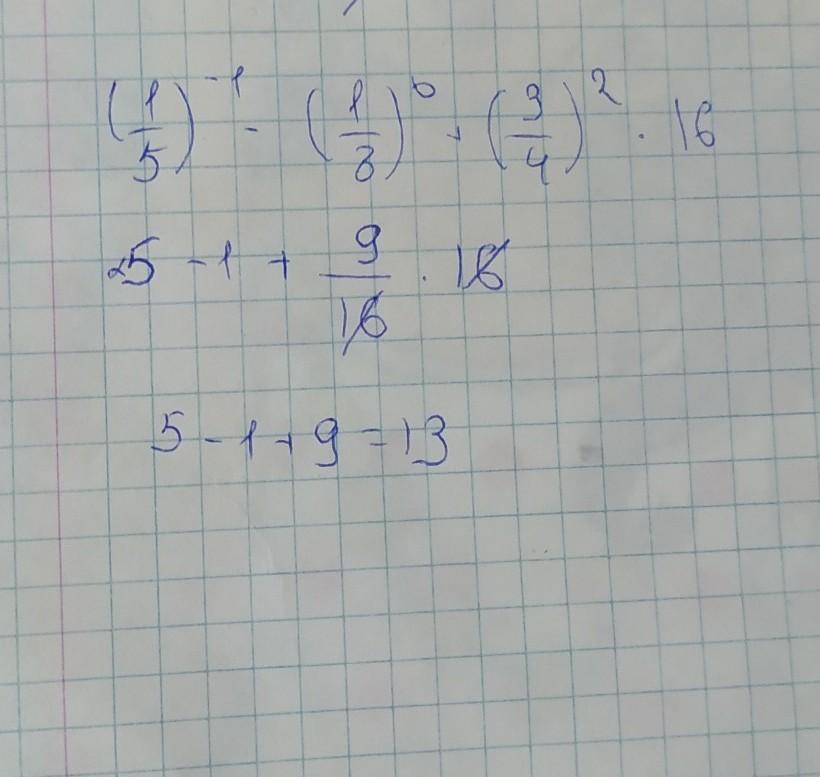 (1/5)^-1 - (1/3)^0 + (3/4)^2 · 16
5 - 1 + 9/16 · 16
5 - 1 + 9 = 13